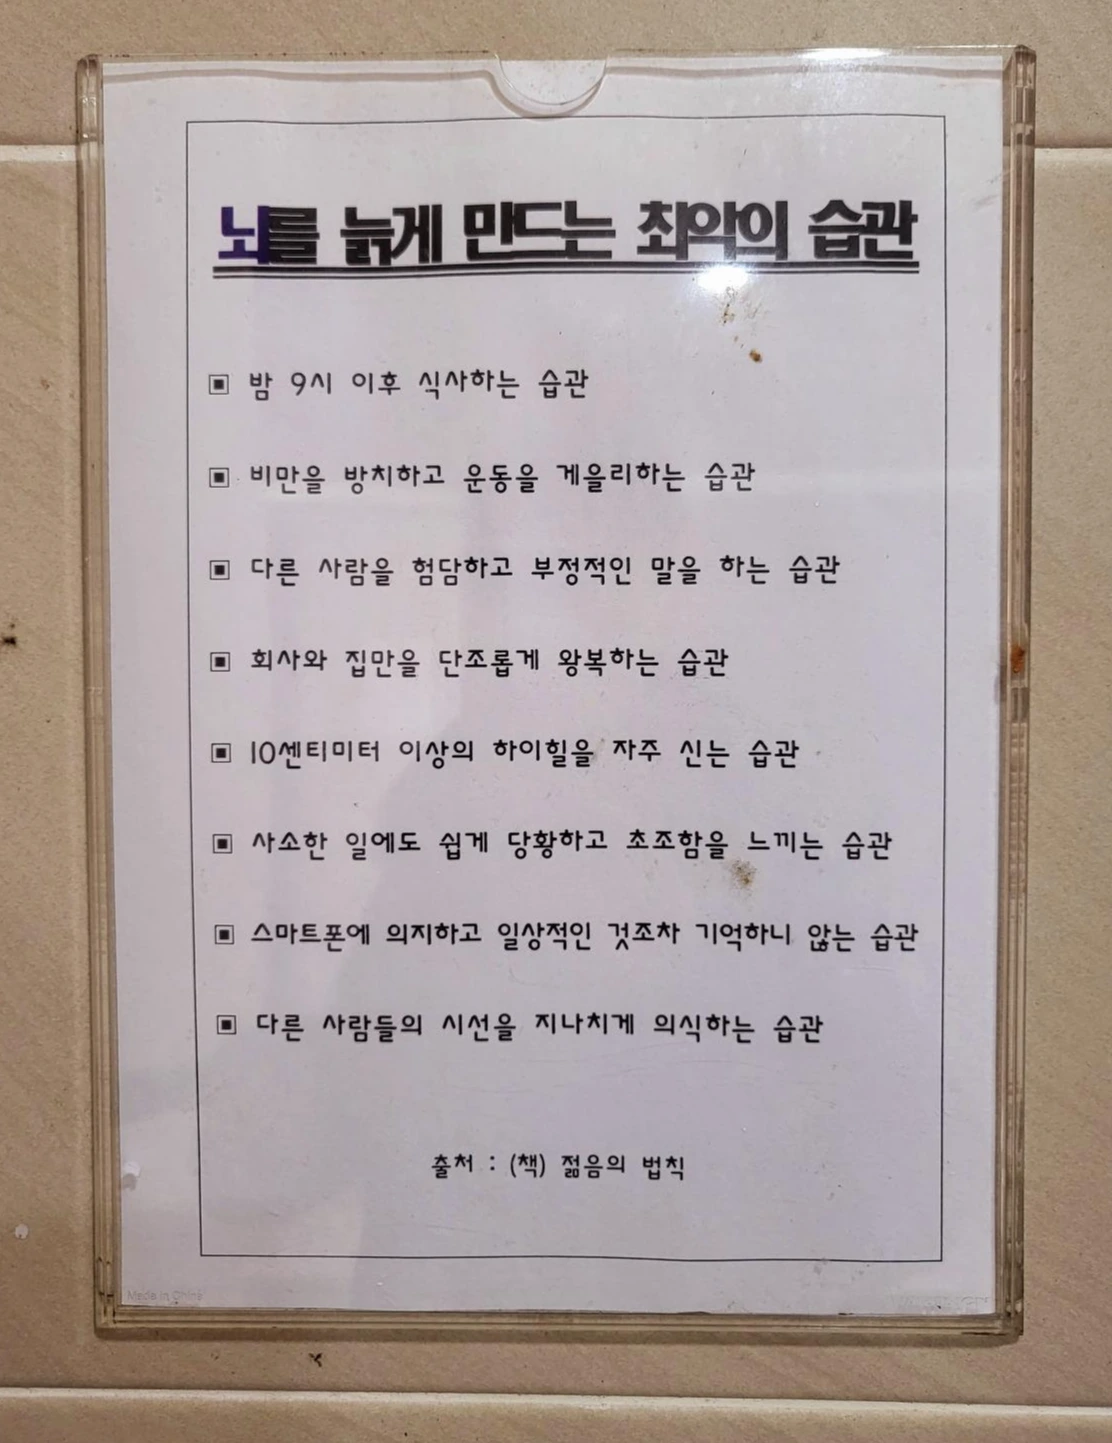 뇌를 늙게 만드는 최악의 습관
▣ 밤 9시 이후 식사하는 습관
▣ 비만을 방치하고 운동을 게을리하는 습관
▣ 다른 사람을 험담하고 부정적인 말을 하는 습관
▣ 회사와 집만을 단조롭게 왕복하는 습관
▣ 10센티미터 이상의 하이힐을 자주 신는 습관
▣ 사소한 일에도 쉽게 당황하고 초조함을 느끼는 습관
▣ 스마트폰에 의지하고 일상적인 것조차 기억하니 않는 습관
▣ 다른 사람들의 시선을 지나치게 의식하는 습관
출처 : (책) 젊음의 법칙
Made in China